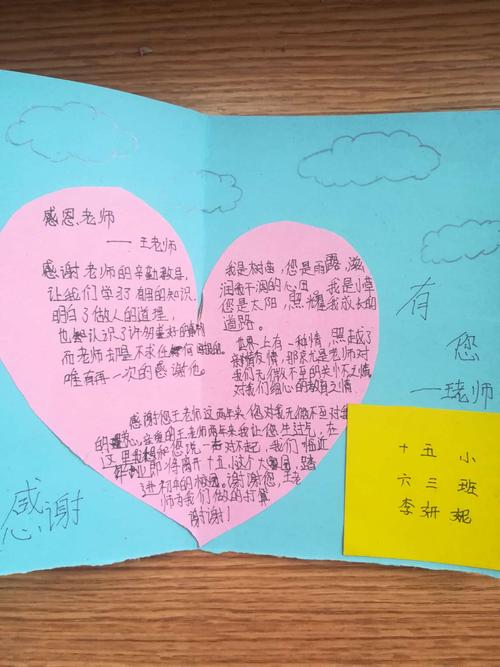 感恩老师
——王老师
感谢老师的辛勤教导,
让我们学习有用的知识
明白了做人的道理,
也认识了许多
而老师却是不求任何
唯有再一次的感谢您
我是树苗,您是雨露,滋
润着干涸的心田 我是小草
您是太阳,照耀我成长的
道路。
世界上有一种情,超越了
友情,那就是老师对
我们无微不至的关怀之情
对我们细心的教育之情
感谢您王老师这两年来您对我无微不至对我
的 王老师两年来我让您生过气,在
这里我想和您说一声对不起,我们临近
即将离开十五这个大 踏
进初中的校园,谢谢您王老
师为我们做的打算
谢谢!
感谢
有
您
——王老师
十五小
六三班
李妍妮